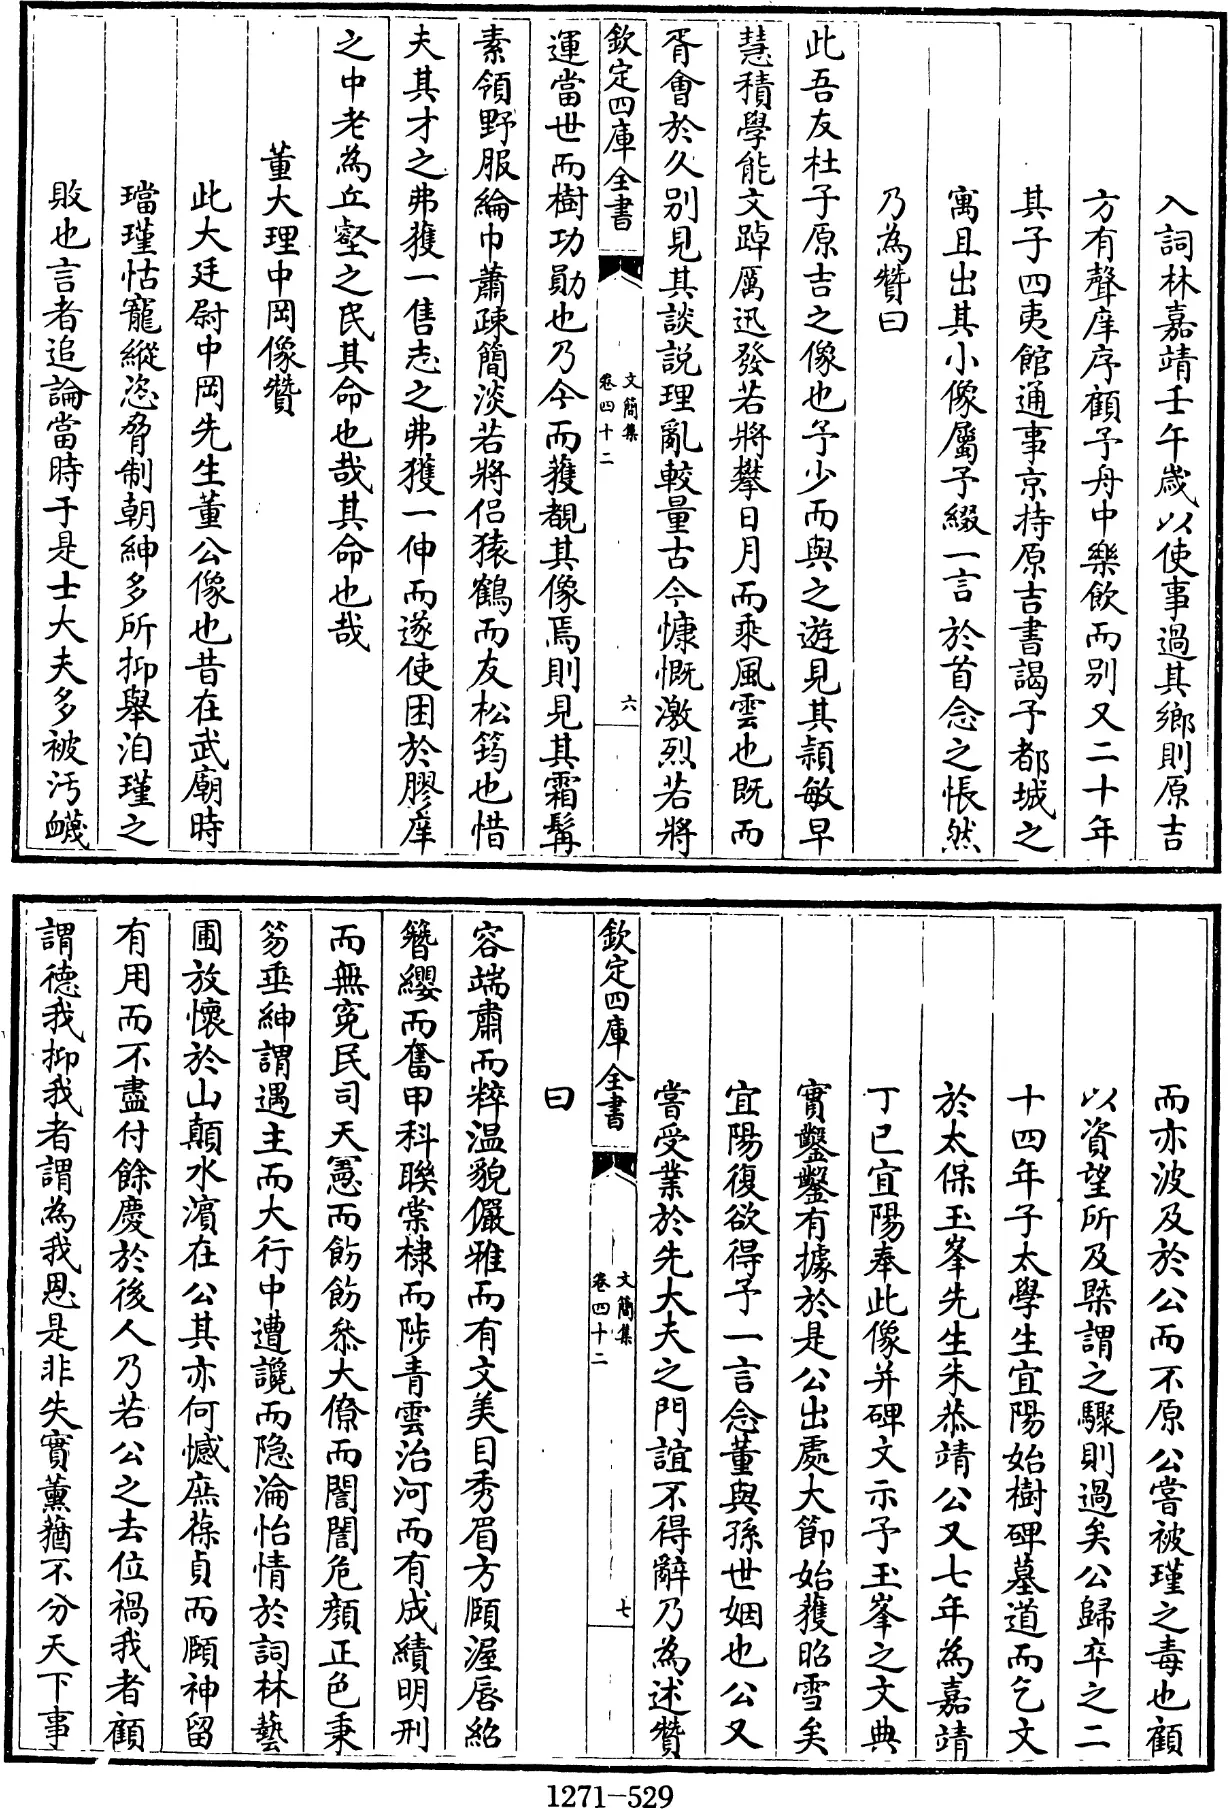 入詞林嘉靖壬午歲以使事過其鄉則原吉
方有聲庠序顧予舟中樂飲而别又二十年
其子四夷館通事京持原吉書謁予都城之
寓且出其小像屬予綴一言於首念之悵然
乃為贊曰
此吾友杜子原吉之像也予少而與之遊見其頴敏早
慧積學能文踔厲迅發若將攀日月而乘風雲也既而
胥會於久别見其談説理亂較量古今慷慨激烈若將
欽定四庫全書
文簡集
卷四十二
六
運當世而樹功勛也乃今而獲覩其像焉則見其霜髯
素領野服綸巾蕭疎簡淡若將侣猿鶴而友松筠也惜
夫其才之弗獲一售志之弗獲一伸而遂使困於膠庠
之中老為丘壑之民其命也哉其命也哉
董大理中岡像贊
此大廷尉中岡先生董公像也昔在武廟時
璫瑾怙寵縱恣脅制朝紳多所抑舉洎瑾之
敗也言者追論當時于是士大夫多被汚衊
而亦波及於公而不原公嘗被瑾之毒也顧
以資望所及槩謂之驟則過矣公歸卒之二
十四年子太學生宜陽始樹碑墓道而乞文
於太保玉峯先生朱恭靖公又七年為嘉靖
丁巳宜陽奉此像并碑文示予玉峯之文典
實鑿鑿有據於是公出處大節始獲昭雪矣
宜陽復欲得予一言念董與孫世姻也公又
嘗受業於先大夫之門誼不得辭乃為述贊
欽定四庫全書
文簡集
卷四十二
七
曰
容端肅而粹温貌儼雅而有文美目秀眉方頤渥唇紹
簪纓而奮甲科聯棠棣而陟青雲治河而有成績明刑
而無寃民司天憲而飭飭叅大僚而誾誾危顔正色秉
笏垂紳謂遇主而大行中遭讒而隐淪怡情於詞林藝
圃放懷於山顛水濵在公其亦何憾庶葆貞而頤神留
有用而不盡付餘慶於後人乃若公之去位禍我者顧
謂德我抑我者謂為我恩是非失實薰蕕不分天下事
1271—529